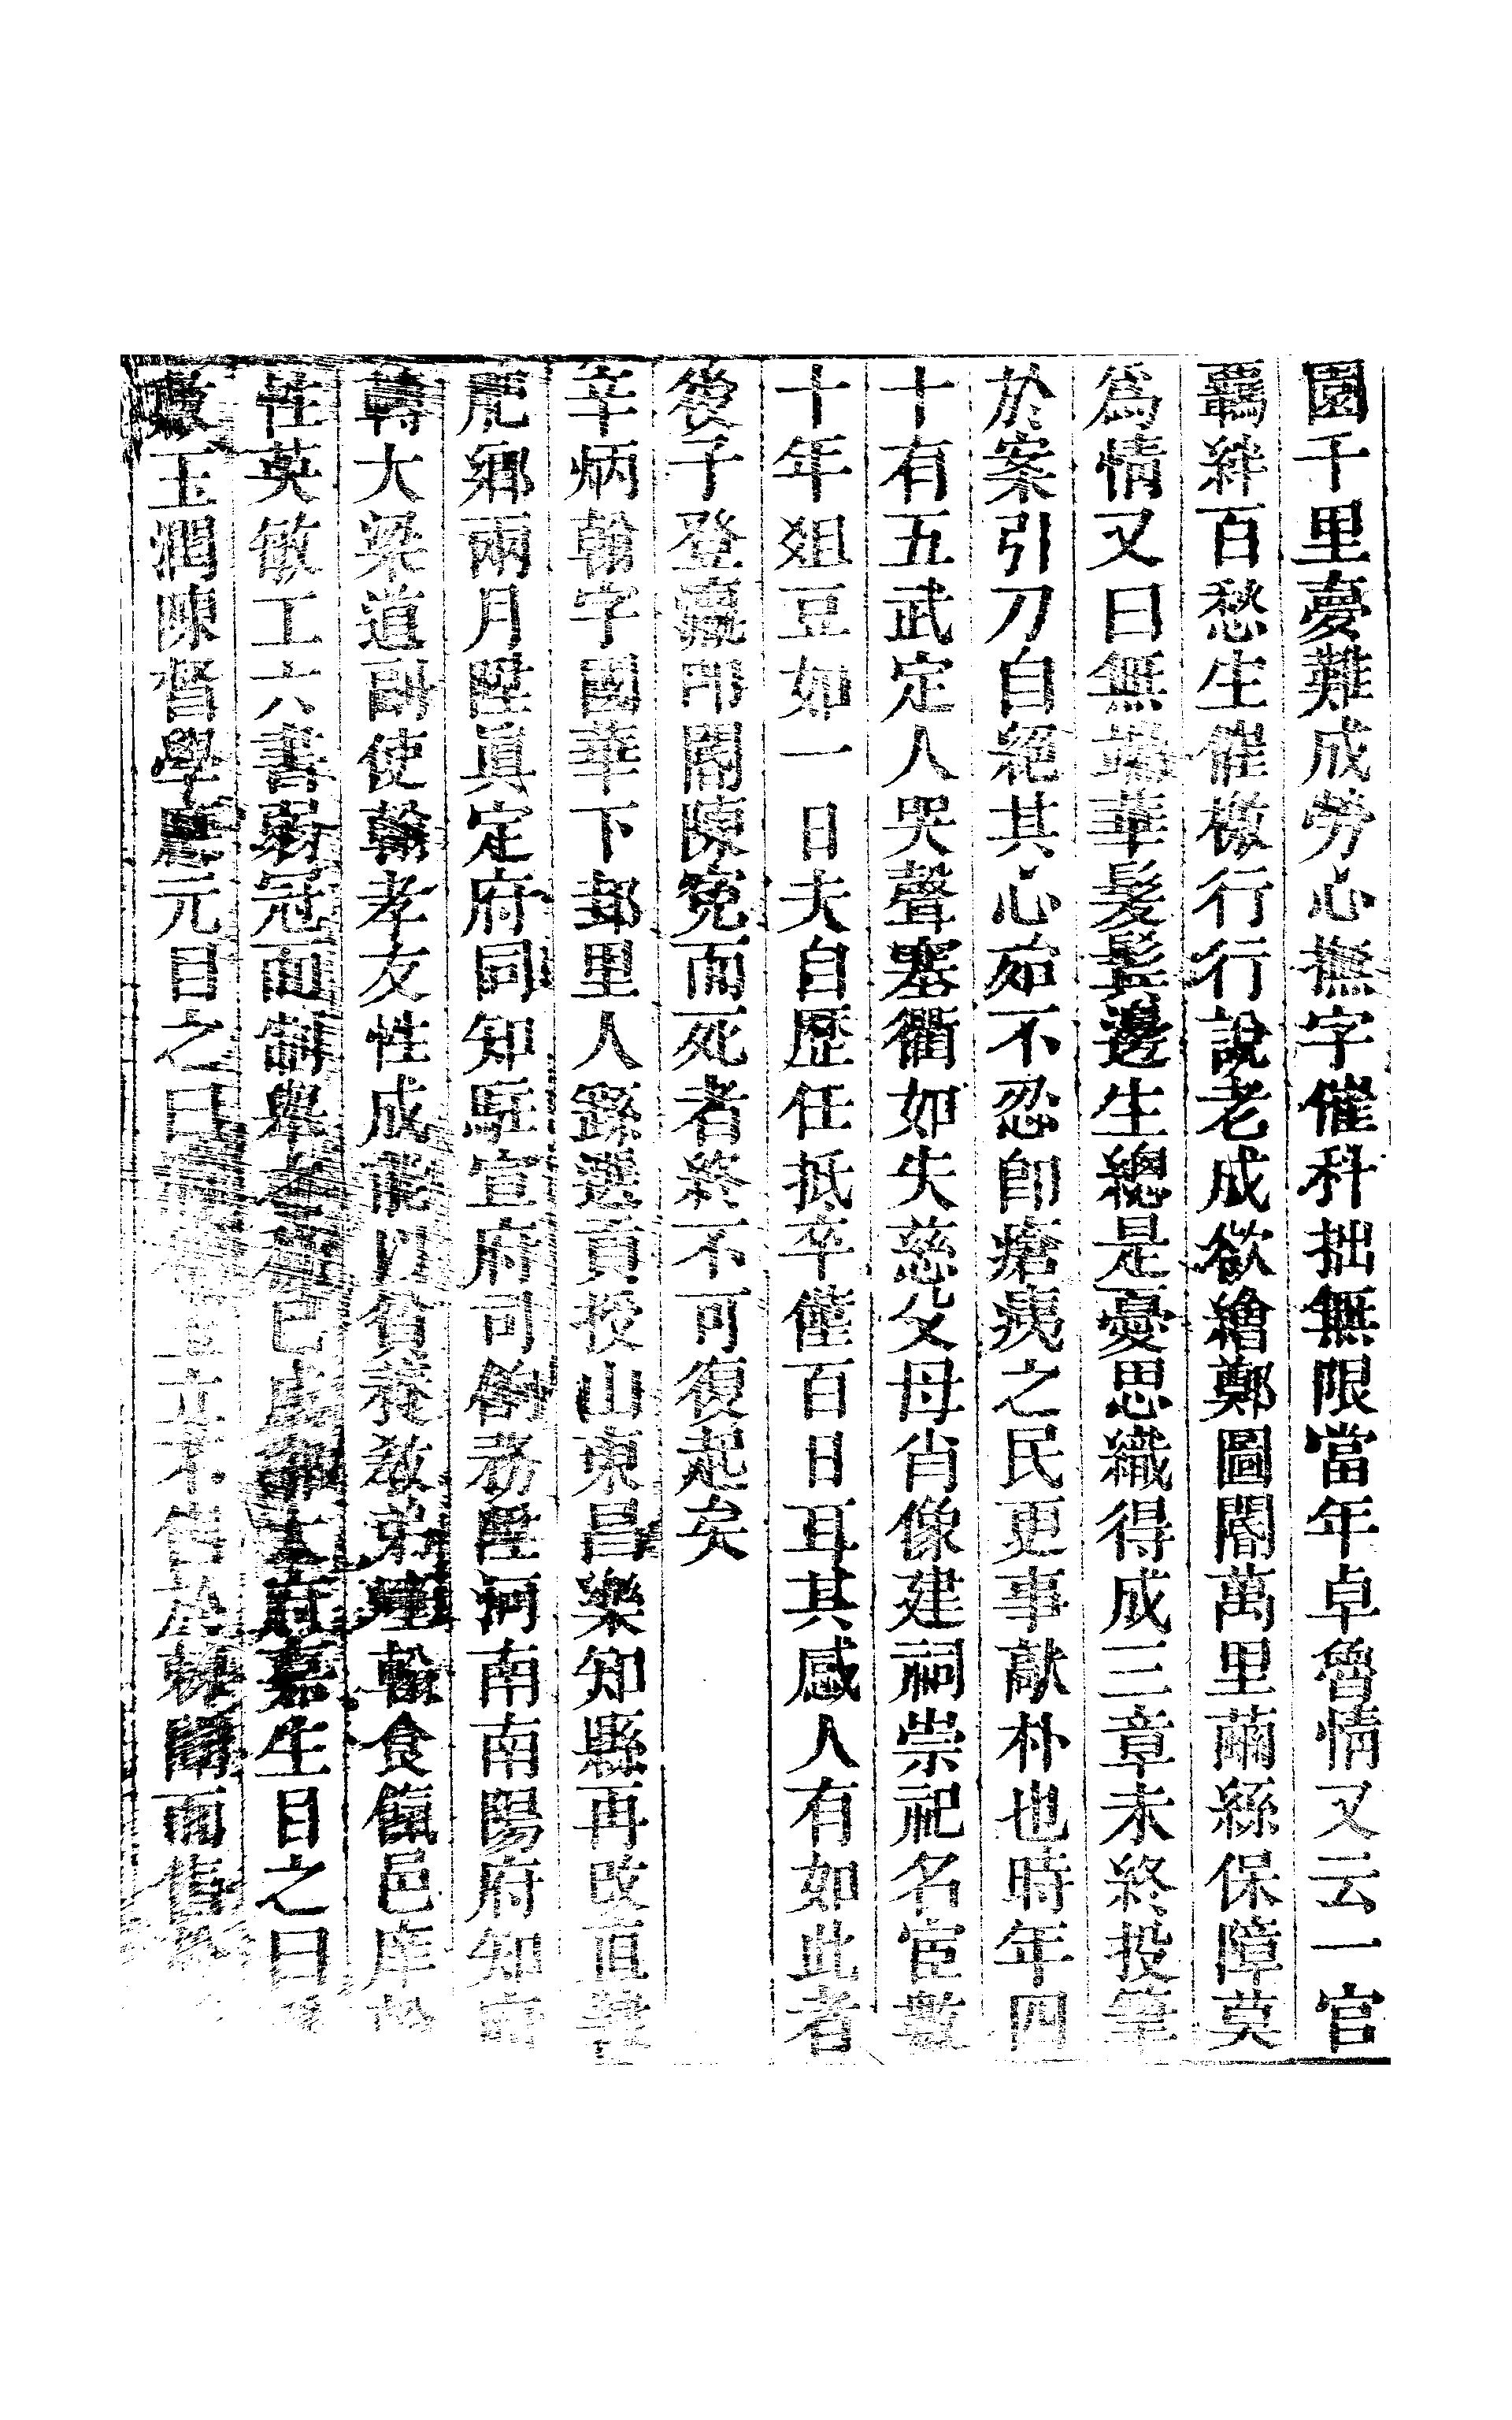 園千里夢難成勞心撫字催科拙無限當年卓魯情又云一官
羈絆百愁生催檄行行說老成欲繪鄭圖閽萬里繭絲保障莫
爲情又曰無端華髮鬢邊生總是憂思織得成三章未終投筆
於案引刀自絕其心寧不忍卽瘡痍之民更事敲朴也時年四
十有五武定人哭聲塞衢如失慈父母肖像建祠崇祀名宦數
十年俎豆如一日夫自歷任抵卒僅百日耳其感人有如此者
後子登瀛叩閽陳冤而死者終不可復起矣
辛炳翰字國華下邽里人繇選貢授山東昌樂知縣再改直隸
肥鄉兩月陞眞定府同知駐宣府司餉務陞河南南陽府知府
轉大梁道副使翰孝友性成能以資養敎弟 輸食餼邑庠
性英敏工六書弱冠而 已 生目之曰
玉潤陳督學 元目之曰 而